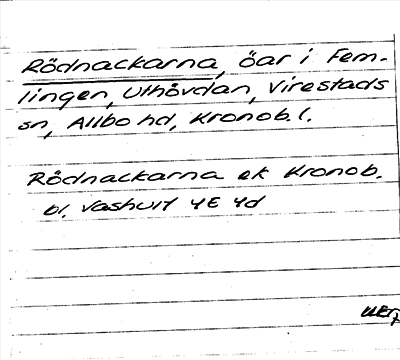 Rödnackarna, öar i Fem-
lingen, Uthövdan, Virestads
sn, Allbo hd, Kronob. l.
Rödnackarna ek Kronob.
bl. Vashult 4E 4d